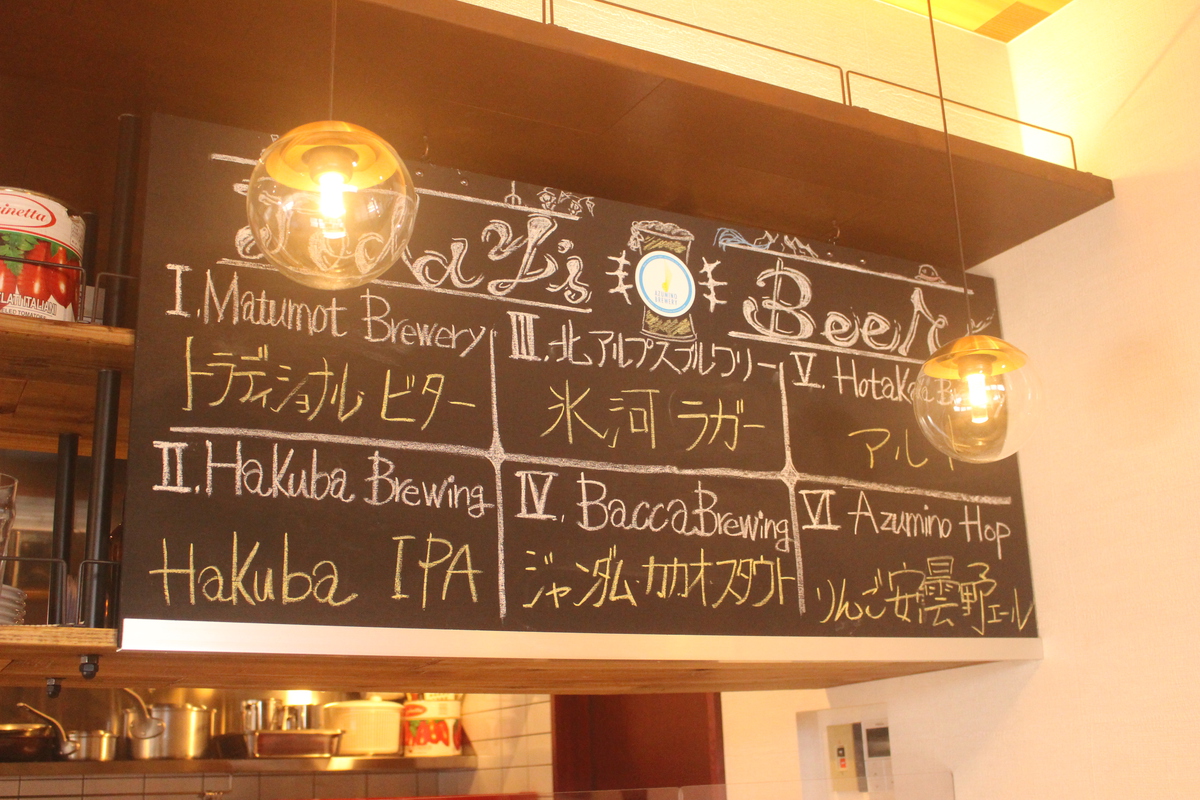 Today's Beer
AZUMINO
BREWERY
I. Matumot Brewery
トラディショナル ビター
II. Hakuba Brewing
Hakuba IPA
III. 北アルプスブルワリー
氷河 ラガー
IV. Bacca Brewing
ジャンダム カカオスタウト
V. Hotaka
アルト
VI Azumino Hop
りんご安曇野エール